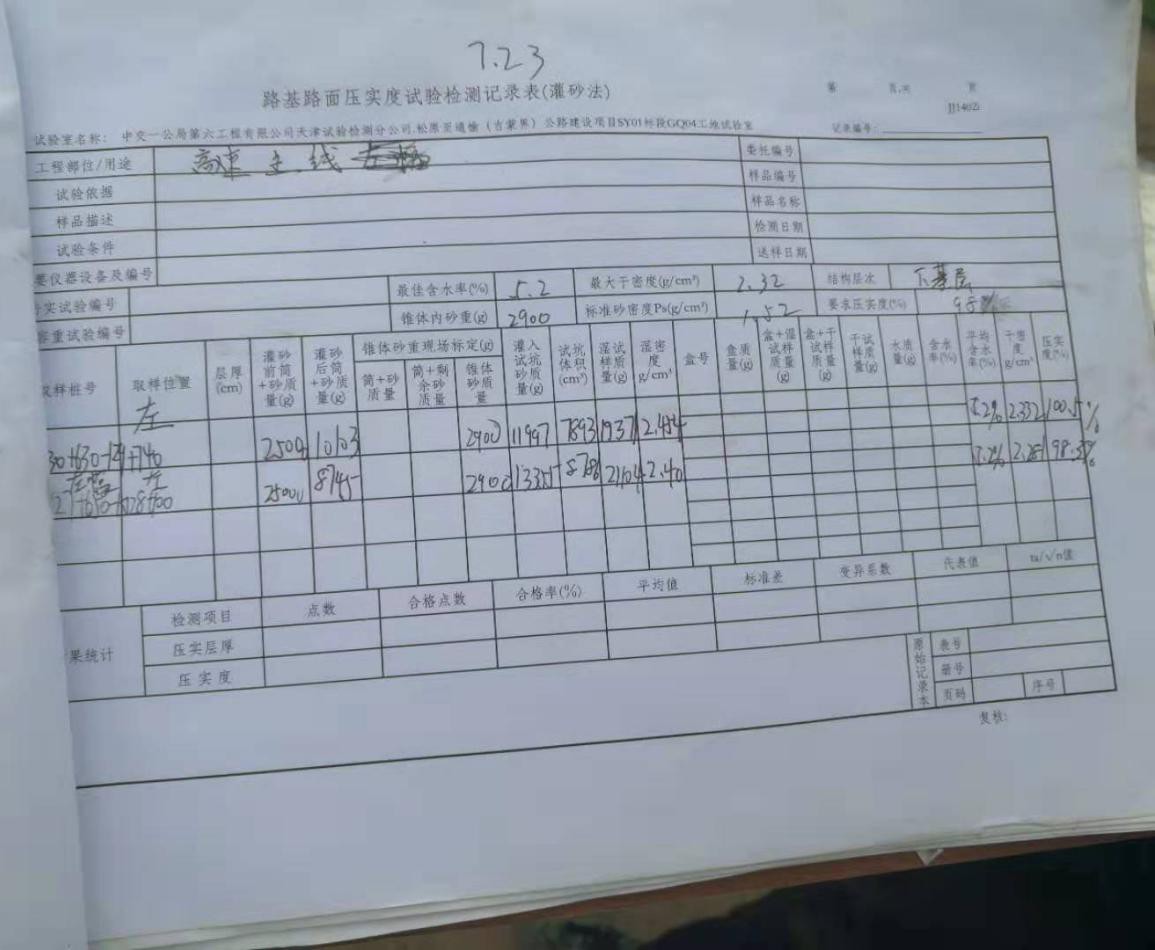 7.23
路基路面压实度试验检测记录表(灌砂法)
第 页,共 页
JJ1402i
试验室名称: 中交一公局第六工程有限公司天津试验检测分公司.松原至通榆(吉蒙界)公路建设项目SY01标段GQ04工地试验室 记录编号:
工程部位/用途 高速主线 委托编号
试验依据 样品编号
样品描述 样品名称
试验条件 检测日期
要仪器设备及编号 送样日期
实试验编号 最佳含水率(%) 5.2 最大干密度(g/cm³) 2.32 结构层次 下基层
容重试验编号 锥体内砂重(g) 2900 标准砂密度Ps(g/cm³) 1.52 要求压实度(%) 98
取样桩号 取样位置 层厚(cm) 灌砂前筒+砂质量(g) 灌砂后筒+砂质量(g) 锥体砂重现场标定(g) 筒+砂质量 筒+剩余砂质量 锥体砂质量 灌入试坑砂质量(g) 试坑体积(cm³) 湿试样质量(g) 湿密度g/cm³ 盒号 盒质量(g) 盒+湿试样质量(g) 盒+干试样质量(g) 干试样质量(g) 水质量(g) 含水率(%) 平均含水率(%) 干密度g/cm³ 压实度(%)
左 2900 11997 7893 2.454 5.2% 2.332 100.5%
+740
左 8745 2900 2.40 98.3%
检测项目 点数 合格点数 合格率(%) 平均值 标准差 变异系数 代表值 ta/√n值
果统计 压实层厚
压实度
原始记录本 表号
册号
页码 序号
复核: